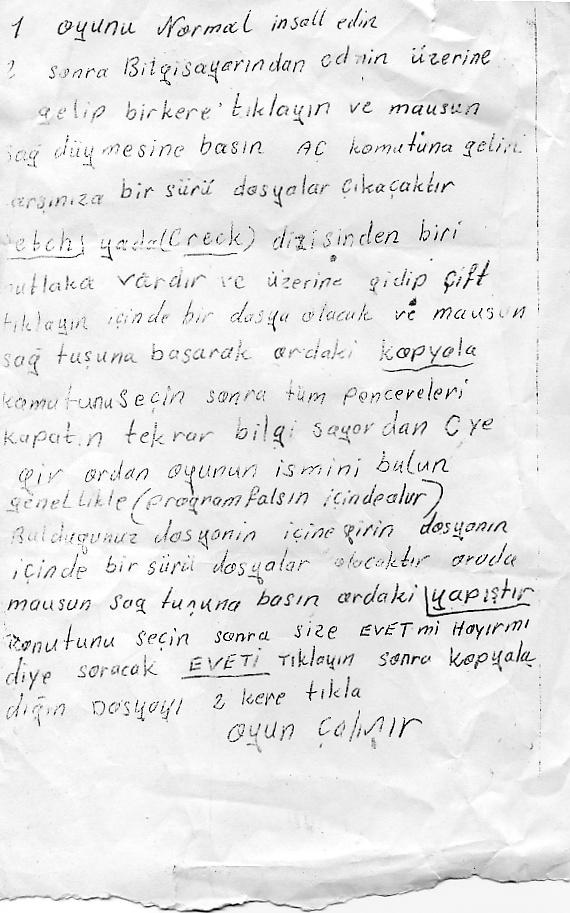 1 oyunu Normal insall edin
2 sonra Bilgisayarından cdnin üzerine
gelip birkere tıklayın ve mausun
sağ düymesine basın AC komutuna gelin
arşınıza bir sürü dosyalar çıkaçaktır
yada(Creck) dizisinden biri
mutlaka vardır ve üzerine gidip çift
tıklayın içinde bir dosya olacak ve mausun
sağ tuşuna basarak ordaki kopyala
komutunu seçin sonra tüm pencereleri
kapatın tekrar bilgi sayordan C ye
gir ordan oyunun ismini bulun
genellikle (programfalsın içindeolur)
Buldugunuz dosyanin içine girin dosyanın
içinde bir sürü dosyalar olacaktır orada
mausun sag tuşuna basın ordaki yapıştır
konutunu seçin sonra size EVET mi Hayırmı
diye soracak EVETİ Tıklayın sonra kopyala
dığın Dosyayı 2 kere tıkla
oyun çalışır